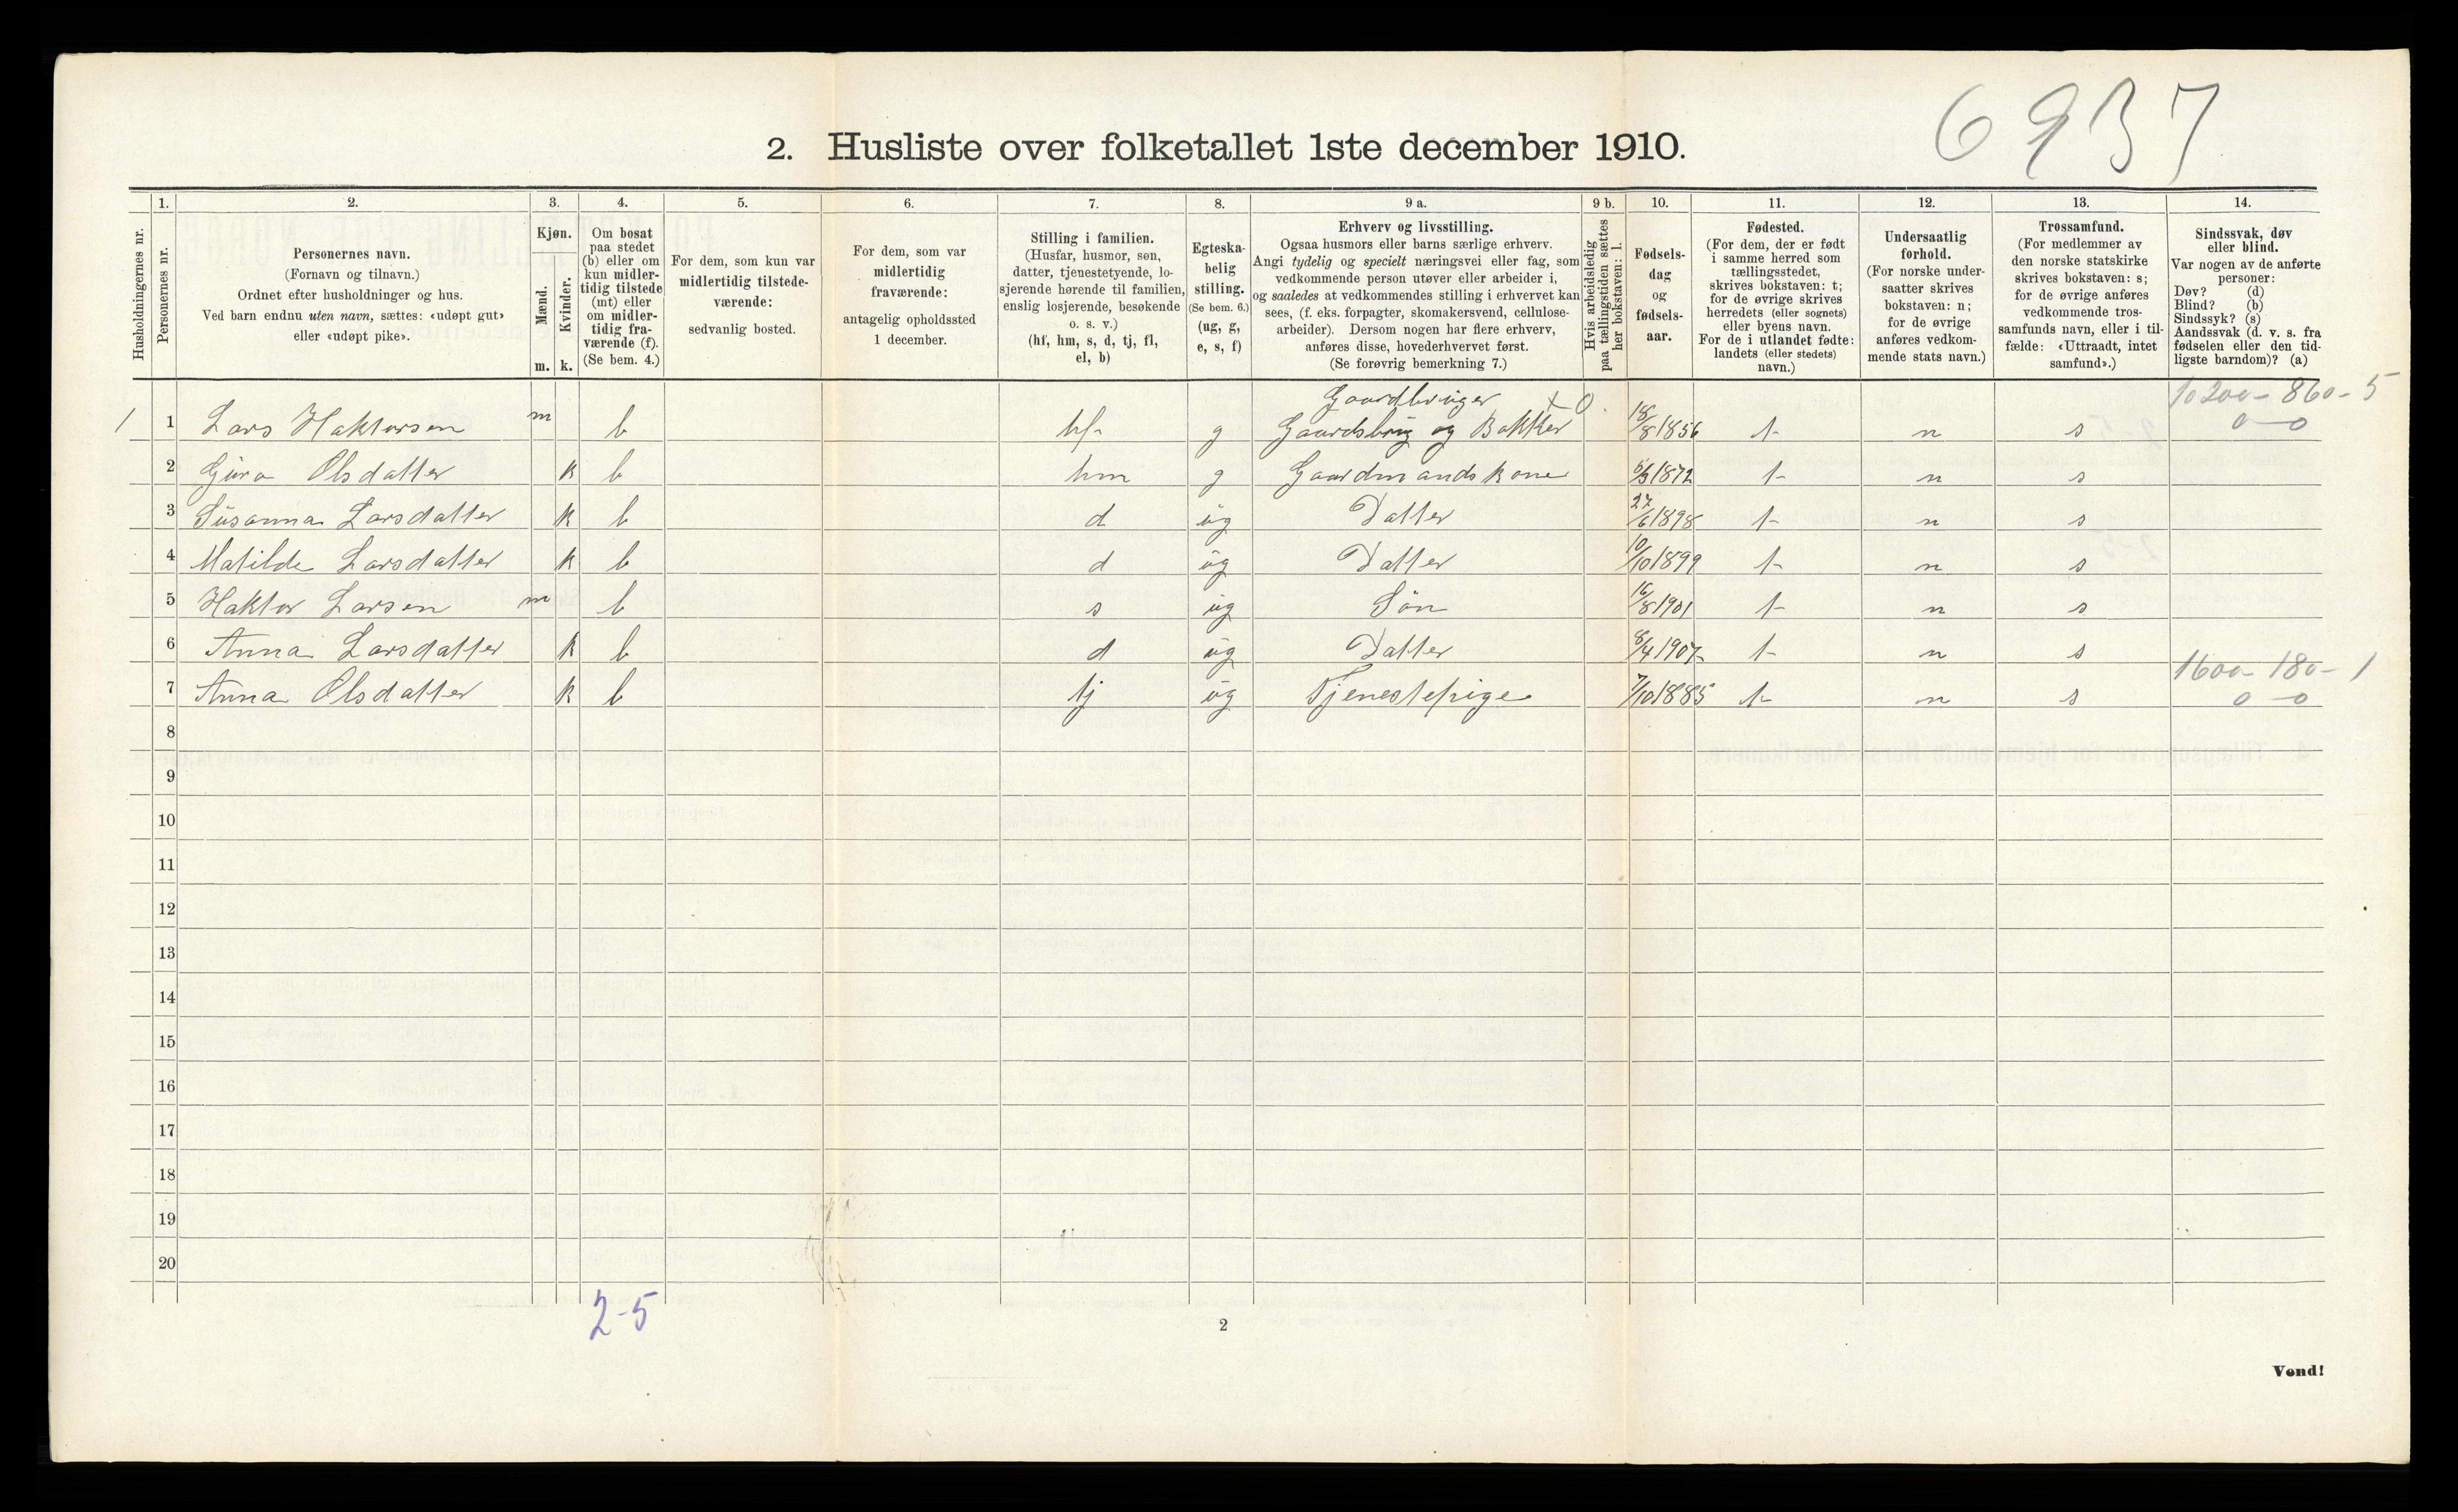 6937
2. Husliste over folketallet 1ste december 1910.
1. 2. 3. 4. 5. 6. 7. 8. 9 a. 9 b. 10. 11. 12. 13. 14.
Husholdningernes nr.
Personernes nr.
Personernes navn.
(Fornavn og tilnavn.)
Ordnet efter husholdninger og hus.
Ved barn endnu uten navn, sættes: «udøpt gut»
eller «udøpt pike».
Kjøn.
Mænd.
Kvinder.
m. k.
Om bosat
paa stedet
(b) eller om
kun midler-
tidig tilstede
(mt) eller
om midler-
tidig fra-
værende (f).
(Se bem. 4.)
For dem, som kun var
midlertidig tilstede-
værende:
sedvanlig bosted.
For dem, som var
midlertidig
fraværende:
antagelig opholdssted
1 december.
Stilling i familien.
(Husfar, husmor, søn,
datter, tjenestetyende, lo-
sjerende hørende til familien,
enslig losjerende, besøkende
o. s. v.)
(hf, hm, s, d, tj, fl,
el, b)
Egteska-
belig
stilling.
(Se bem. 6.)
(ug, g,
e, s, f)
Erhverv og livsstilling.
Ogsaa husmors eller barns særlige erhverv.
Angi tydelig og specielt næringsvei eller fag, som
vedkommende person utøver eller arbeider i,
og saaledes at vedkommendes stilling i erhvervet kan
sees, (f. eks. forpagter, skomakersvend, cellulose-
arbeider). Dersom nogen har flere erhverv,
anføres disse, hovederhvervet først.
(Se forøvrig bemerkning 7.)
Hvis arbeidsledig
paa tællingstiden sættes
her bokstaven: l.
Fødsels-
dag
og
fødsels-
aar.
Fødested.
(For dem, der er født
i samme herred som
tællingsstedet,
skrives bokstaven: t;
for de øvrige skrives
herredets (eller sognets)
eller byens navn.
For de i utlandet fødte:
landets (eller stedets)
navn.)
Undersaatlig
forhold.
(For norske under-
saatter skrives
bokstaven: n;
for de øvrige
anføres vedkom-
mende stats navn.)
Trossamfund.
(For medlemmer av
den norske statskirke
skrives bokstaven: s;
for de øvrige anføres
vedkommende tros-
samfunds navn, eller i til-
fælde: «Uttraadt, intet
samfund».)
Sindssvak, døv
eller blind.
Var nogen av de anførte
personer:
Døv? (d)
Blind? (b)
Sindssyk? (s)
Aandssvak (d. v. s. fra
fødselen eller den tid-
ligste barndom)? (a)
Gaardbruger x 0 10200 - 860 - 5
1 1 Lars Haktorsen m b hf g Gaardsbrug og Bakker 18/8 1856 t n s 0 - 0
2 Guro Olsdatter k b hm g Gaardmandskone 5/3 1872 t n s
3 Susanna Larsdatter k b d ug Datter 27/6 1898 t n s
4 Matilde Larsdatter k b d ug Datter 10/10 1899 t n s
5 Haktor Larsen m b s ug Søn 16/8 1901 t n s
6 Anna Larsdatter k b d ug Datter 8/4 1907 t n s
1600 - 180 - 1
7 Anna Olsdatter k b tj ug Tjenestepige 7/10 1885 t n s 0 - 0
8
9
10
11
12
13
14
15
16
17
18
19
20
2-5
2
Vend!